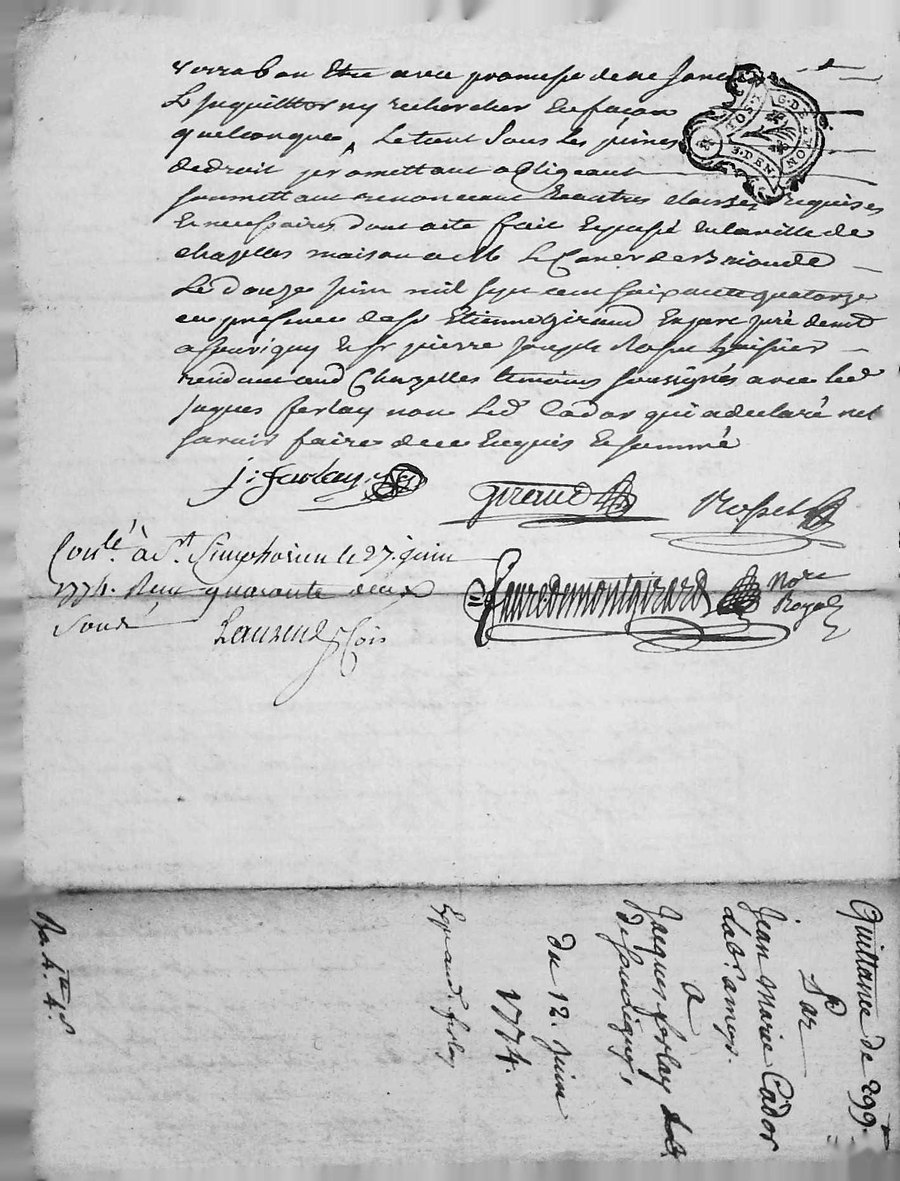 verra bon etre avec promesse de ne
Le ny rechercher en façon
quelconque, Le tout sous Les peines
de droit promettant obligeant
soumettant renonceant Et autres clauses requises
Et necessaires dont acte fait Et passé En la ville de
chazelles maison de Brioude
Le douze juin mil sept cent soixante quatorze
en presence de sr Etienne Giraud Expert juré demt
a Et sr pierre joseph Rosset huissier
rendant aud Chazelles temoins soussignés avec led
jaques ferlay non Led Cador qui a declaré ne
savoir faire de ce Enquis Et sommé
j: ferlay
Giraud
Rosset
G. DE LYON
2. S. DEN.
Conlé à St. Simphorien le 27. juin
1774. Reçu quarante deux
sous
Laurent Cois
Fauredemontgirard Nore Royal
Quittance de 299.tt
Par
Jean Marie Cador
a
Jacques ferlay
du 12. juin
1774.
Expend. ferlay
Ra 4.tt 4.s